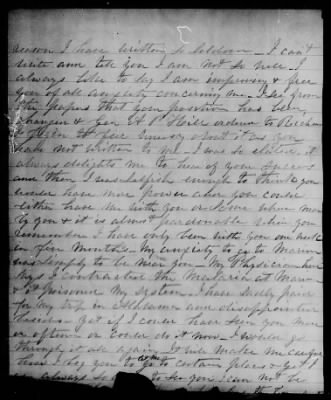 reason I have written so seldom – I can't
write and tell you I am not so well I
always like to say I am improving & free
you of all anxiety concerning me. I see from
the papers that your position has been
changed & Gen A P Hill ordered to
& feel uneasy about it as you
have not written to me. I was so
always delights me to hear of your success
and then I was selfish enough to think you
would have more power when you could
either have me with you or come when
ty you & it is almost pardonable when you
remember I have only been with you one week
in five months. My anxiety to go to
was simply to be near you. My Physician
says I contracted the Malaria at
& it poisoned my system. I have sadly paid
for my trip in Alabama and disappointed
desires. Yet if I could have seen you more
or often or could do it now I would go
through it all again. It will make me
I beg you to go to certain places & yet I
am always so to see you I can not be